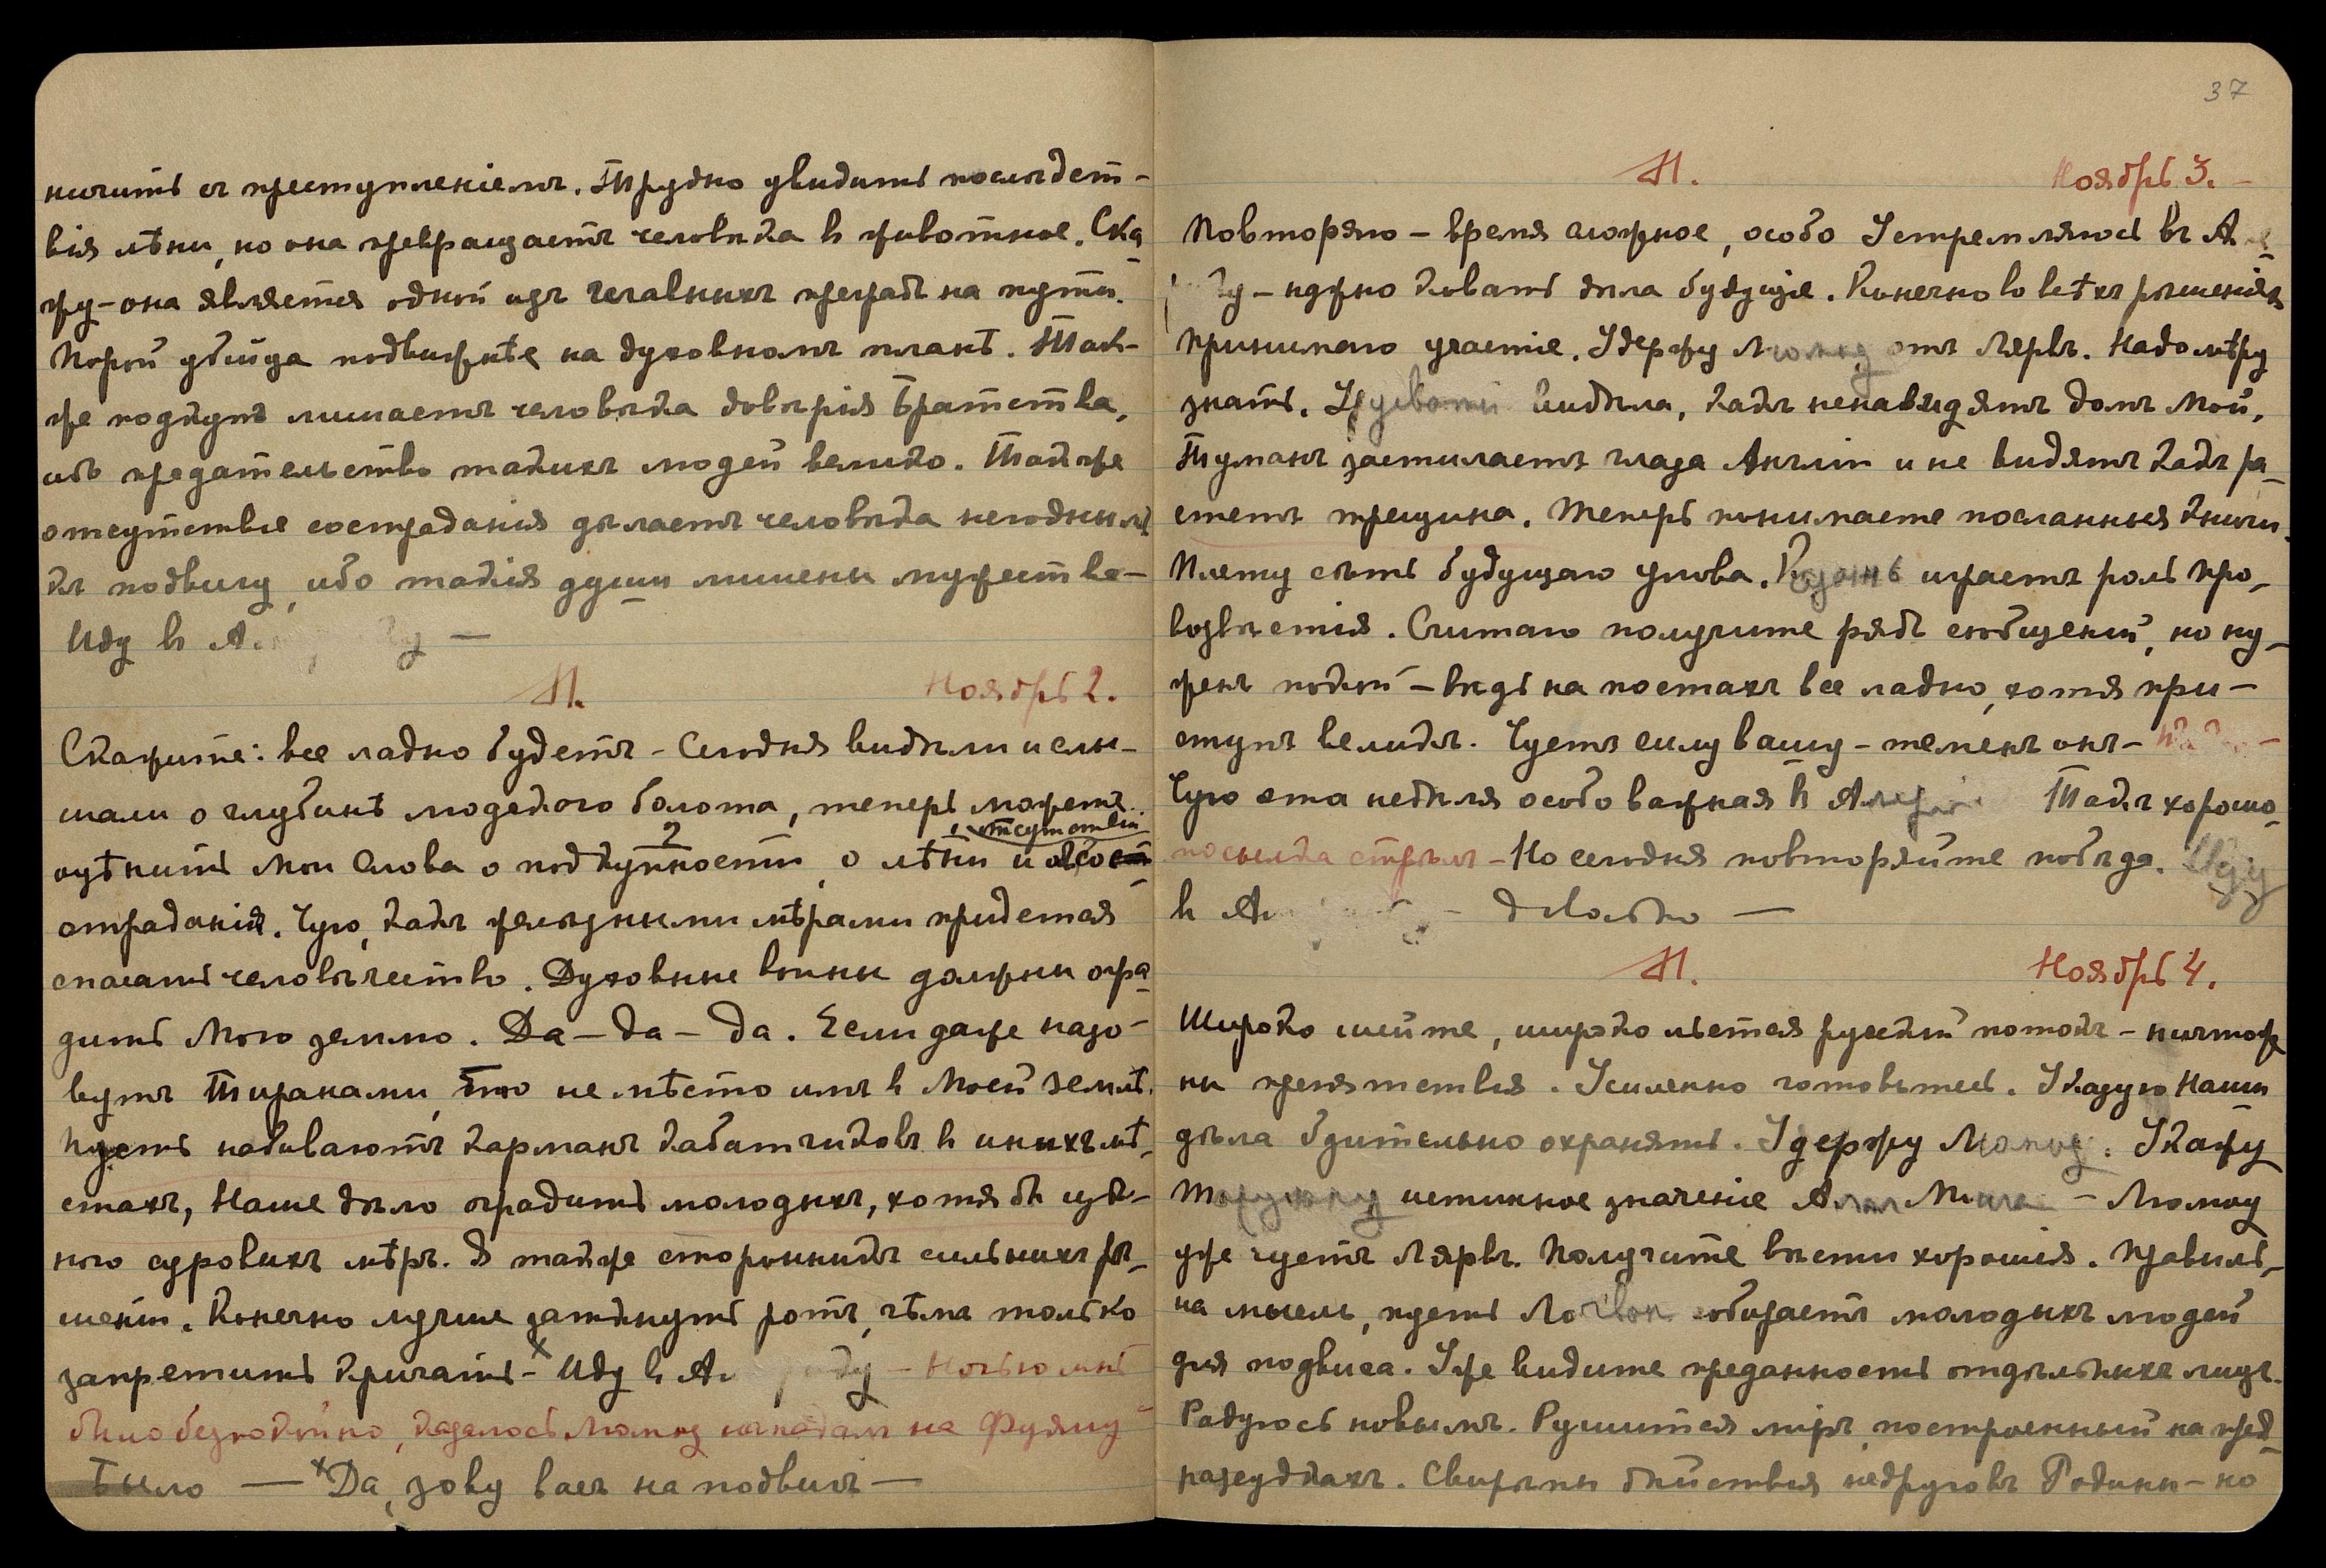 ничить съ преступленіемъ. Трудно увидить послѣдст-
вія лѣни, но она превращаетъ человѣка въ животное. Ска
жу – она является одной изъ главныхъ преградъ на пути.
Порой убійца подвижнѣе на духовномъ планѣ. Так-
же подкупъ лишаетъ человѣка довѣрія Братства,
ибо предательство такихъ людей велико. Также
отсутствіе состраданія дѣлаетъ человѣка негоднымъ
къ подвигу, ибо такія души лишены мужества –
Иду въ А
М. Ноябрь 2.
Скажите: все ладно будетъ – Сегодня видѣли и слы-
шали о глубинѣ людского болота, теперь можете
оцѣнить Мои Слова о подкупности, о лѣни и отсутствіи со-
страданія. Чую, какъ желѣзными мѣрами придется
спасать человѣчество. Духовные воины должны огра-
дить Мою землю. Да – да – да. Если даже назо-
вутъ тиранами, то не мѣсто имъ въ Моей землѣ.
Пусть набиваютъ карманъ кабатчиковъ въ иныхъ мѣ-
стахъ, Наше дѣло оградить молодыхъ, хотя бы цѣ-
ною суровыхъ мѣръ. Я также сторонникъ сильныхъ рѣ-
шеній. Конечно лучше заткнуть ротъ, чѣмъ только
запретить кричать –ˣ Иду въ А – Ночью мнѣ
было безпокойно, казалось Люмоу нападалъ на Фуяму
Было — ˣДа, зову васъ на подвигъ —
37
М. Ноябрь 3. –
Повторяю – время сложное, особо Устремляюсь въ А
ду – нужно ковать дѣла будущіе. Конечно во всѣхъ рѣшеніяхъ
принимаю участіе. Удержу Люмоу отъ Лярвъ. Надо мѣру
знать. видѣла, какъ ненавидятъ домъ Мой,
Туманъ застилаетъ глаза Англіи и не видятъ какъ ра-
стетъ трещина. Теперь понимаете посланныя книги.
Плету сѣть будущаго улова. играетъ роль про-
возвѣстія. Считаю получите рядъ сообщеній, но ну-
женъ покой – вѣдь на постахъ все ладно, хотя при-
ступъ великъ. Чуетъ силу вашу – теменъ онъ –
Чую эта недѣля особо важная въ Такъ хорошо
посылка стрѣлъ – Но сегодня повторяйте побѣда. Иду
въ А – довольно —
М. Ноябрь 4.
Широко шлите, широко льется русскій потокъ – ничтож
ны препятствія. Усиленно готовьтесь. Указую Наши
дѣла бдительно охранять. Удержу Люмоу. Укажу
истинное значеніе – Люмоу
уже чуетъ Лярвъ. Получите вѣсти хорошія. Правиль-
на мысль, пусть собираетъ молодыхъ людей
для подвига. Уже видите преданность отдѣльныхъ лицъ.
Радуюсь новымъ. Рушится міръ, построенный на пред-
разсудкахъ. Свирѣпы дѣйствія недруговъ Родины – но